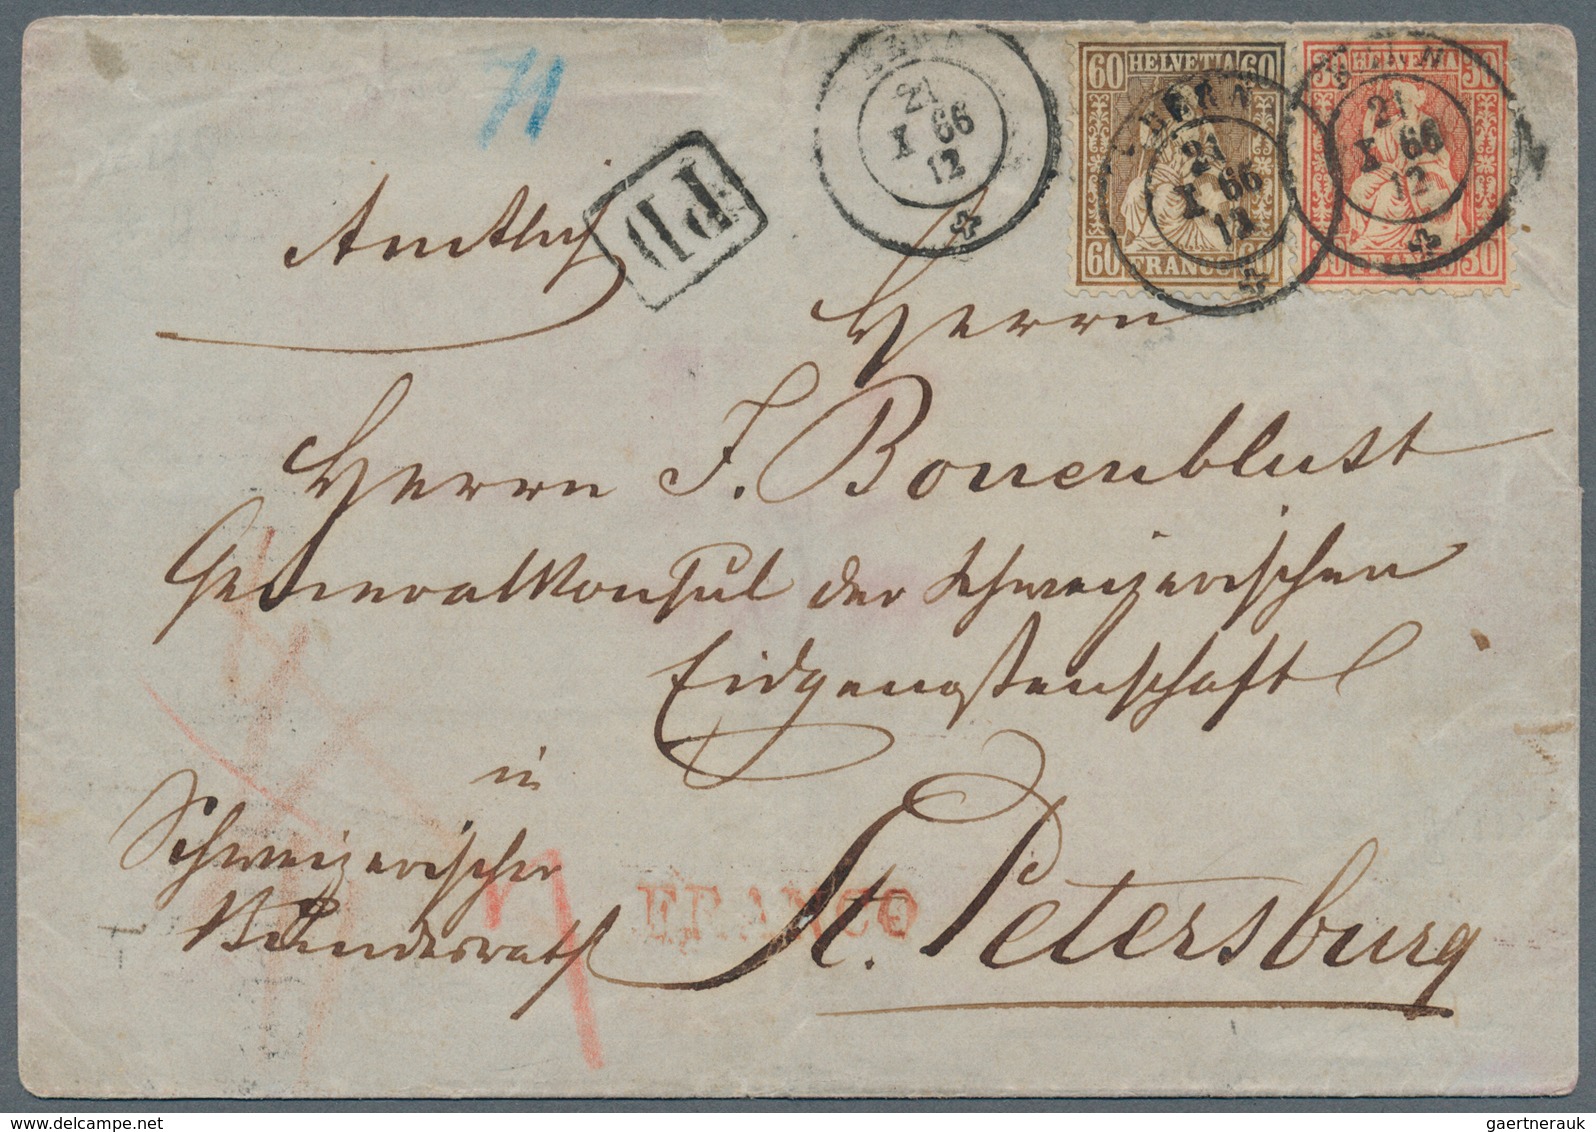 71
BERN
21
I 66
12
60 HELVETIA 60
60 FRANCO 60
BERN
21
I 66
12
30 HELVETIA 30
30 FRANCO 30
BERN
21
I 66
12
PD
Amtlich
Herrn
Herrn J. Bonenblust
Generalkonsul der schweizerischen
Eidgenoßenschaft
in
St. Petersburg
FRANCO
Schweizerischer
Bundesrath
7
gaertnerauk@delcampe.net